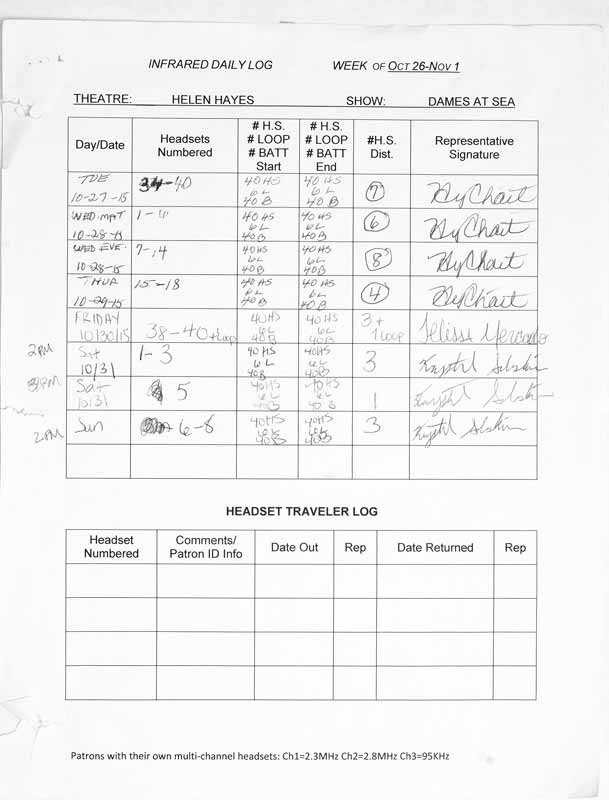 INFRARED DAILY LOG WEEK OF OCT 26-NOV 1
THEATRE: HELEN HAYES SHOW: DAMES AT SEA
Day/Date Headsets Numbered # H.S. # LOOP # BATT Start # H.S. # LOOP # BATT End #H.S. Dist. Representative Signature
TUE 10-27-15 34-40 40 HS 6 L 40 B 40 HS 6 L 40 B 7 HyChait
WED. MAT 10-28-15 1-6 40 HS 6 L 40 B 40 HS 6 L 40 B 6 HyChait
WED EVE. 10-28-15 7-14 40 HS 6 L 40 B 40 HS 6 L 40 B 8 HyChait
THUR 10-29-15 15-18 40 HS 6 L 40 B 40 HS 6 L 40 B 4 HyChait
FRIDAY 10/30/15 38-40 + loop 40 HS 6 L 40 B 40 HS 6 L 40 B 3 + 1 loop
2PM Sat 10/31 1-3 40 HS 6 L 40 B 40 HS 6 L 40 B 3 Krystal
8PM Sat 10/31 5 40 HS 6 L 40 B 40 HS 6 L 40 B 1 Krystal
2PM Sun 6-8 40 HS 6 L 40 B 40 HS 6 L 40 B 3 Krystal
HEADSET TRAVELER LOG
Headset Numbered Comments/ Patron ID Info Date Out Rep Date Returned Rep
Patrons with their own multi-channel headsets: Ch1=2.3MHz Ch2=2.8MHz Ch3=95KHz